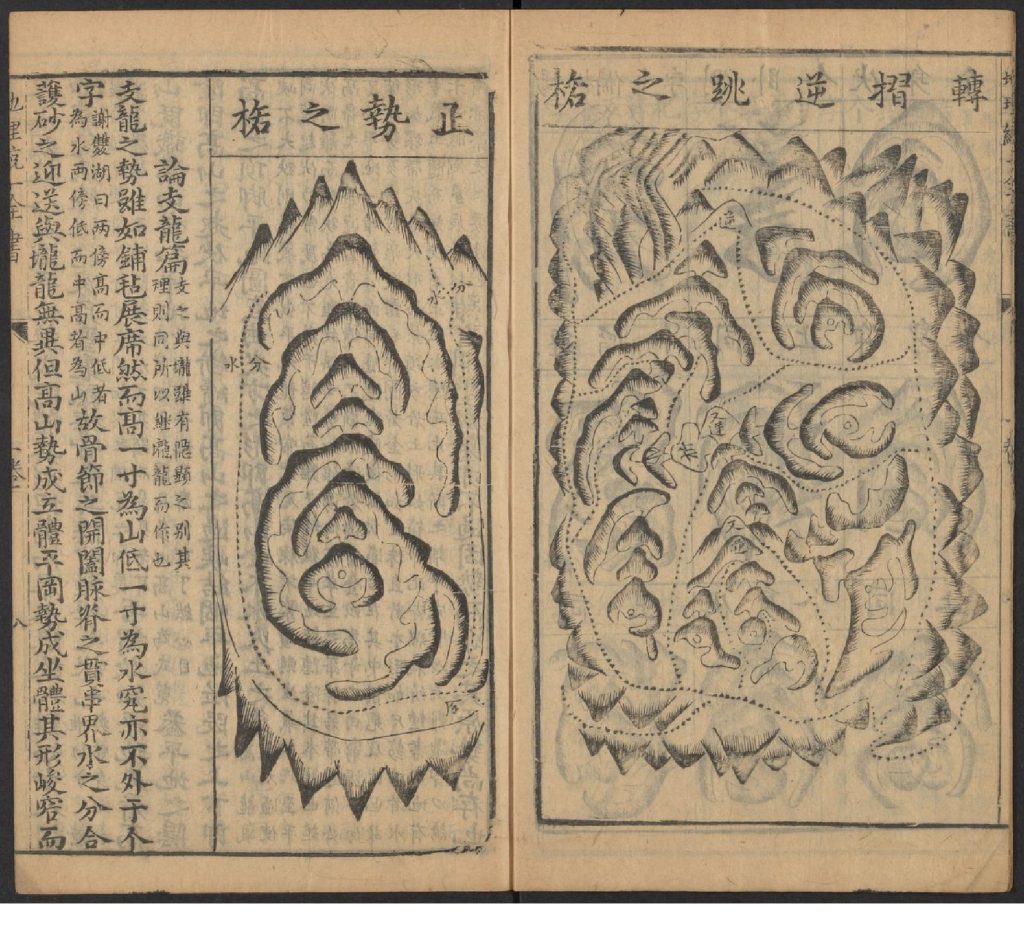 轉摺逆跳之格
正勢之格
分水
分水
合
論支龍篇
支之與壠雖有隱顯之別其
理則同所以繼壠龍而作也
支龍之勢雖如鋪毡展席然而高一寸為山低一寸為水究亦不外于个
字
謝雙湖曰兩傍高而中低者
為水兩傍低而中高者為山
故骨節之開闔脉脊之貫串界水之分合
護砂之迎送與壠龍無異但高山勢成立體平岡勢成坐體其形峻窄而
地理統一全書 一卷 八